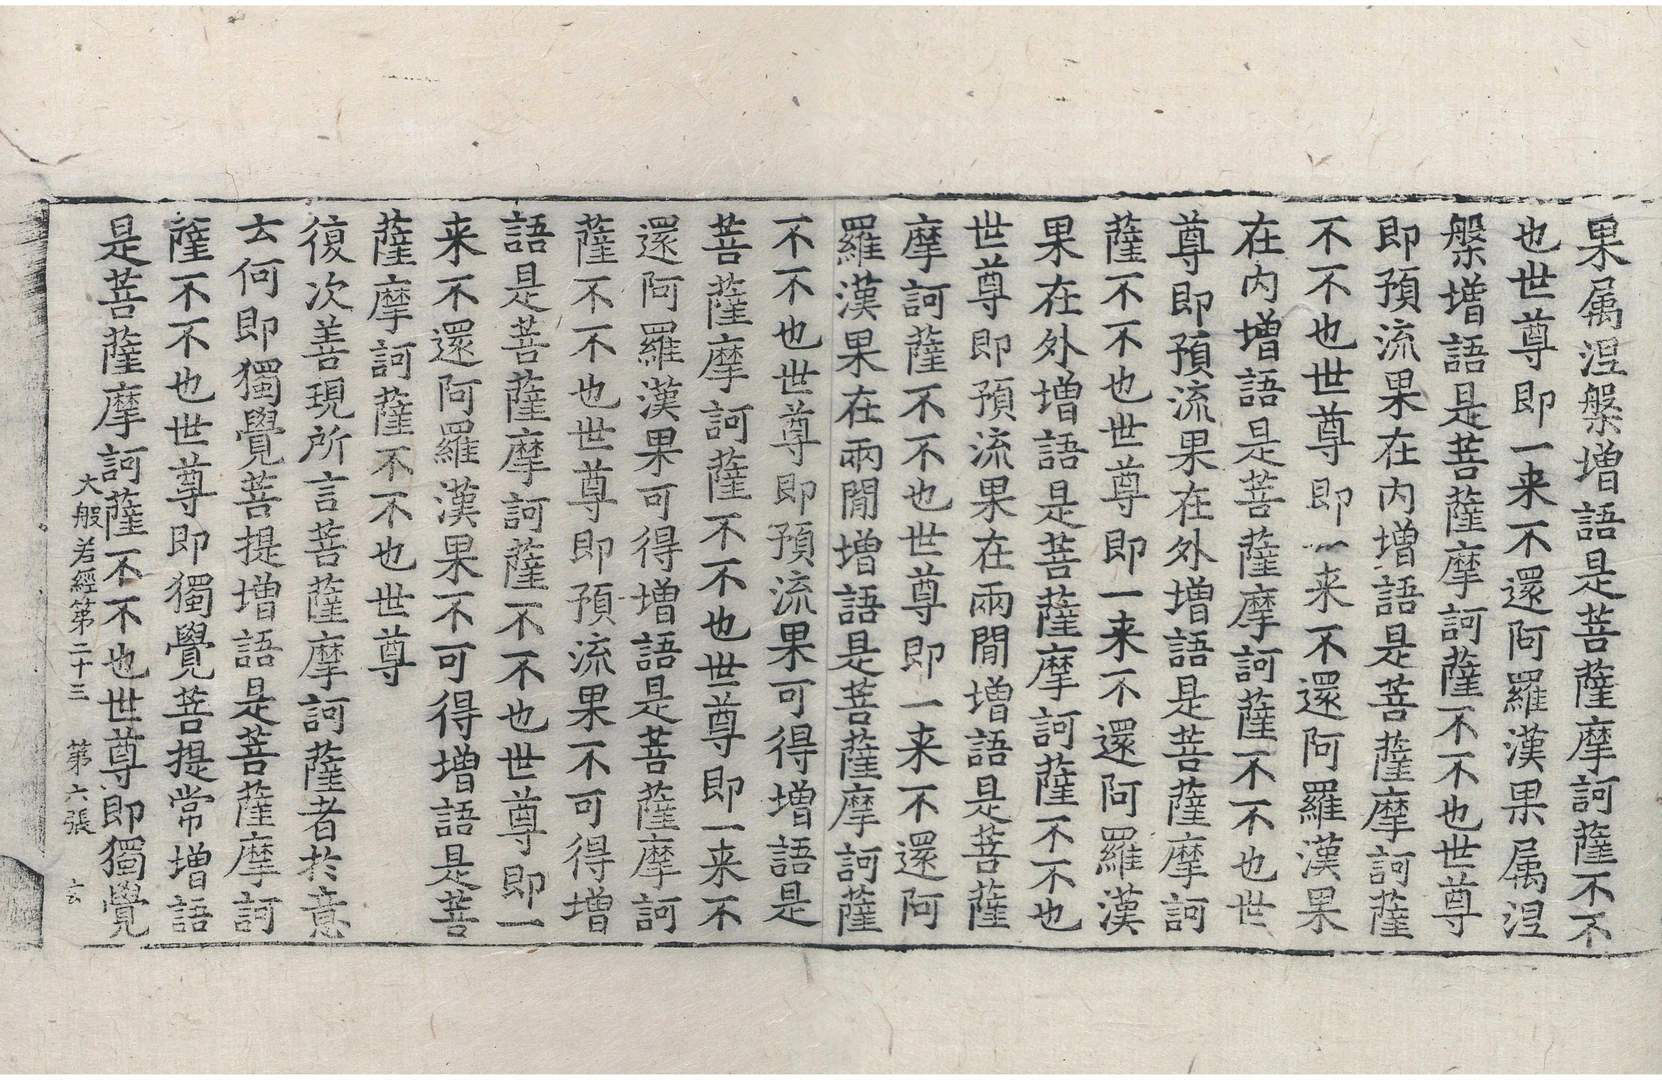 果属涅槃增語是菩薩摩訶薩不不
也世尊即一来不還阿羅漢果属涅
槃增語是菩薩摩訶薩不不也世尊
即預流果在内增語是菩薩摩訶薩
不不也世尊即一来不還阿羅漢果
在内增語是菩薩摩訶薩不不也世
尊即預流果在外增語是菩薩摩訶
薩不不也世尊即一来不還阿羅漢
果在外增語是菩薩摩訶薩不不也
世尊即預流果在兩閒增語是菩薩
摩訶薩不不也世尊即一来不還阿
羅漢果在兩閒增語是菩薩摩訶薩
不不也世尊即預流果可得增語是
菩薩摩訶薩不不也世尊即一来不
還阿羅漢果可得增語是菩薩摩訶
薩不不也世尊即預流果不可得增
語是菩薩摩訶薩不不也世尊即一
来不還阿羅漢果不可得增語是菩
薩摩訶薩不不也世尊
復次善現所言菩薩摩訶薩者於意
云何即獨覺菩提增語是菩薩摩訶
薩不不也世尊即獨覺菩提常增語
是菩薩摩訶薩不不也世尊即獨覺
大般若經第二十三 第六張 玄